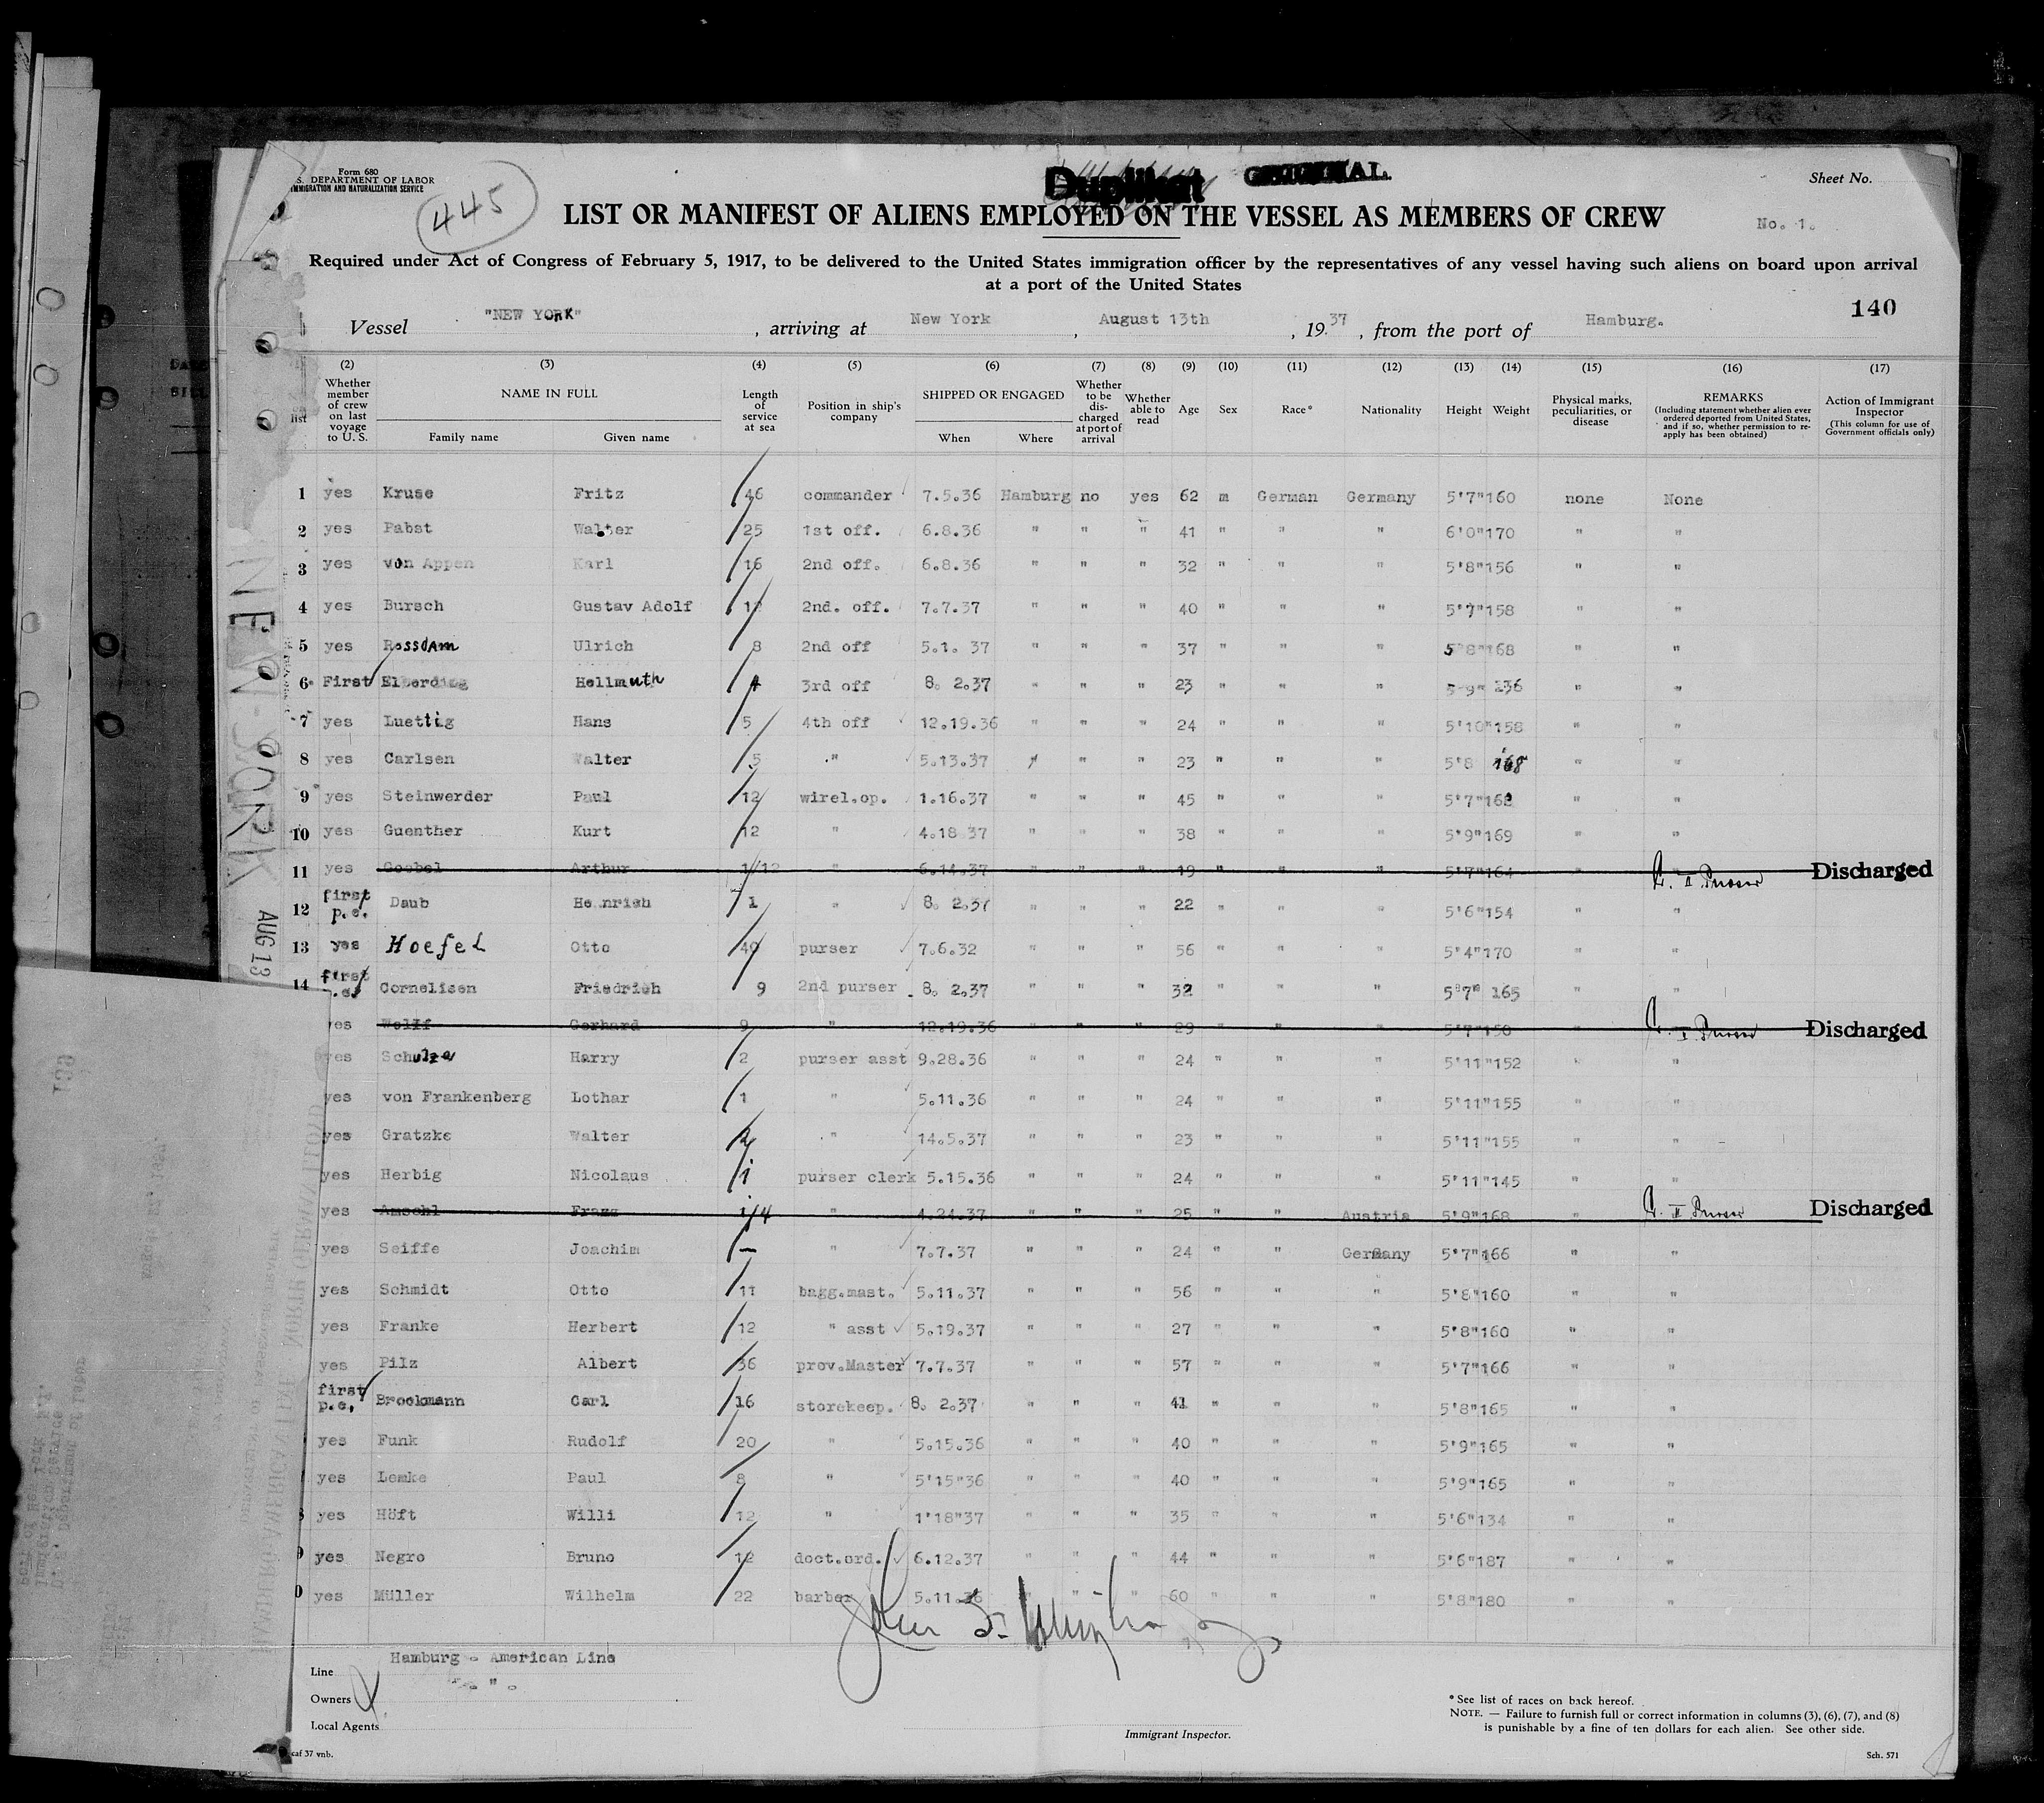 Form 680
U.S. DEPARTMENT OF LABOR
IMMIGRATION AND NATURALIZATION SERVICE
445
Duplikat ORIGINAL.
Sheet No.
LIST OR MANIFEST OF ALIENS EMPLOYED ON THE VESSEL AS MEMBERS OF CREW
No. 1.
Required under Act of Congress of February 5, 1917, to be delivered to the United States immigration officer by the representatives of any vessel having such aliens on board upon arrival
at a port of the United States
140
Vessel "NEW YORK", arriving at New York, August 13th, 1937, from the port of Hamburg.
(2) (3) (4) (5) (6) (7) (8) (9) (10) (11) (12) (13) (14) (15) (16) (17)
list
Whether member of crew on last voyage to U. S.
NAME IN FULL
Family name Given name
Length of service at sea
Position in ship's company
SHIPPED OR ENGAGED
When Where
Whether to be discharged at port of arrival
Whether able to read
Age
Sex
Race*
Nationality
Height
Weight
Physical marks, peculiarities, or disease
REMARKS
(Including statement whether alien ever ordered deported from United States, and if so, whether permission to reapply has been obtained)
Action of Immigrant Inspector
(This column for use of Government officials only)
1 yes Kruse Fritz 46 commander 7.5.36 Hamburg no yes 62 m German Germany 5'7" 160 none None
2 yes Pabst Walter 25 1st off. 6.8.36 " " " 41 " " " 6'0" 170 " "
3 yes von Appen Karl 16 2nd off. 6.8.36 " " " 32 " " " 5'8" 156 " "
4 yes Bursch Gustav Adolf 2nd. off. 7.7.37 " " " 40 " " " 5'7" 158 " "
5 yes Rossdam Ulrich 8 2nd off 5.1. 37 " " " 37 " " " 5'8" 168 " "
6 First Elberding Hellmuth 4 3rd off 8. 2.37 " " " 23 " " " 5-9" 236 " "
7 yes Luettig Hans 5 4th off 12.19.36 " " " 24 " " " 5'10" 158 " "
8 yes Carlsen Walter 5 " 5.13.37 " " " 23 " " " 5'8 168 " "
9 yes Steinwerder Paul 12 wirel.op. 1.16.37 " " " 45 " " " 5'7" 162 " "
10 yes Guenther Kurt 12 " 4.18 37 " " " 38 " " " 5'9" 169 " "
11 yes Goebel Arthur 1/12 " 6.14.37 " " " 19 " " " 5'7" 164 " Discharged
12 first p.e. Daub Heinrich 1 " 8. 2.37 " " " 22 " " " 5'6" 154 " "
13 yes Hoefel Otto 40 purser 7.6.32 " " " 56 " " " 5'4" 170 " "
14 first p.e. Cornelisen Friedrich 9 2nd purser 8. 2.37 " " " 32 " " " 5'7" 165 " "
yes Wolff Gerhard 9 " 12.19.36 " " " 29 " " " 5'7" 150 " Discharged
yes Schulze Harry 2 purser asst 9.28.36 " " " 24 " " " 5'11" 152 " "
yes von Frankenberg Lothar 1 " 5.11.36 " " " 24 " " " 5'11" 155 " "
yes Gratzke Walter 2 " 14.5.37 " " " 23 " " " 5'11" 155 " "
yes Herbig Nicolaus 1 purser clerk 5.15.36 " " " 24 " " " 5'11" 145 " "
yes Amschl Franz 1/4 " 4.24.37 " " " 25 " " Austria 5'9" 168 " Discharged
yes Seiffe Joachim - " 7.7.37 " " " 24 " " Germany 5'7" 166 " "
yes Schmidt Otto 11 bagg.mast. 5.11.37 " " " 56 " " " 5'8" 160 " "
yes Franke Herbert 12 " asst 5.19.37 " " " 27 " " " 5'8" 160 " "
yes Pilz Albert 36 prov.Master 7.7.37 " " " 57 " " " 5'7" 166 " "
first p.e. Brockmann Carl 16 storekeep. 8. 2.37 " " " 41 " " " 5'8" 165 " "
yes Funk Rudolf 20 " 5.15.36 " " " 40 " " " 5'9" 165 " "
yes Lemke Paul 8 " 5'15"36 " " " 40 " " " 5'9" 165 " "
yes Höft Willi 12 " 1'18"37 " " " 35 " " " 5'6" 134 " "
yes Negro Bruno 12 doct.ord. 6.12.37 " " " 44 " " " 5'6" 187 " "
yes Müller Wilhelm 22 barber 5.11.36 " " " 60 " " " 5'8" 180 " "
NEW-YORK
AUG 13
Line Hamburg - American Line
Owners " " "
Local Agents
Immigrant Inspector.
* See list of races on back hereof.
NOTE. — Failure to furnish full or correct information in columns (3), (6), (7), and (8)
is punishable by a fine of ten dollars for each alien. See other side.
caf 37 vnb.
Sch. 571